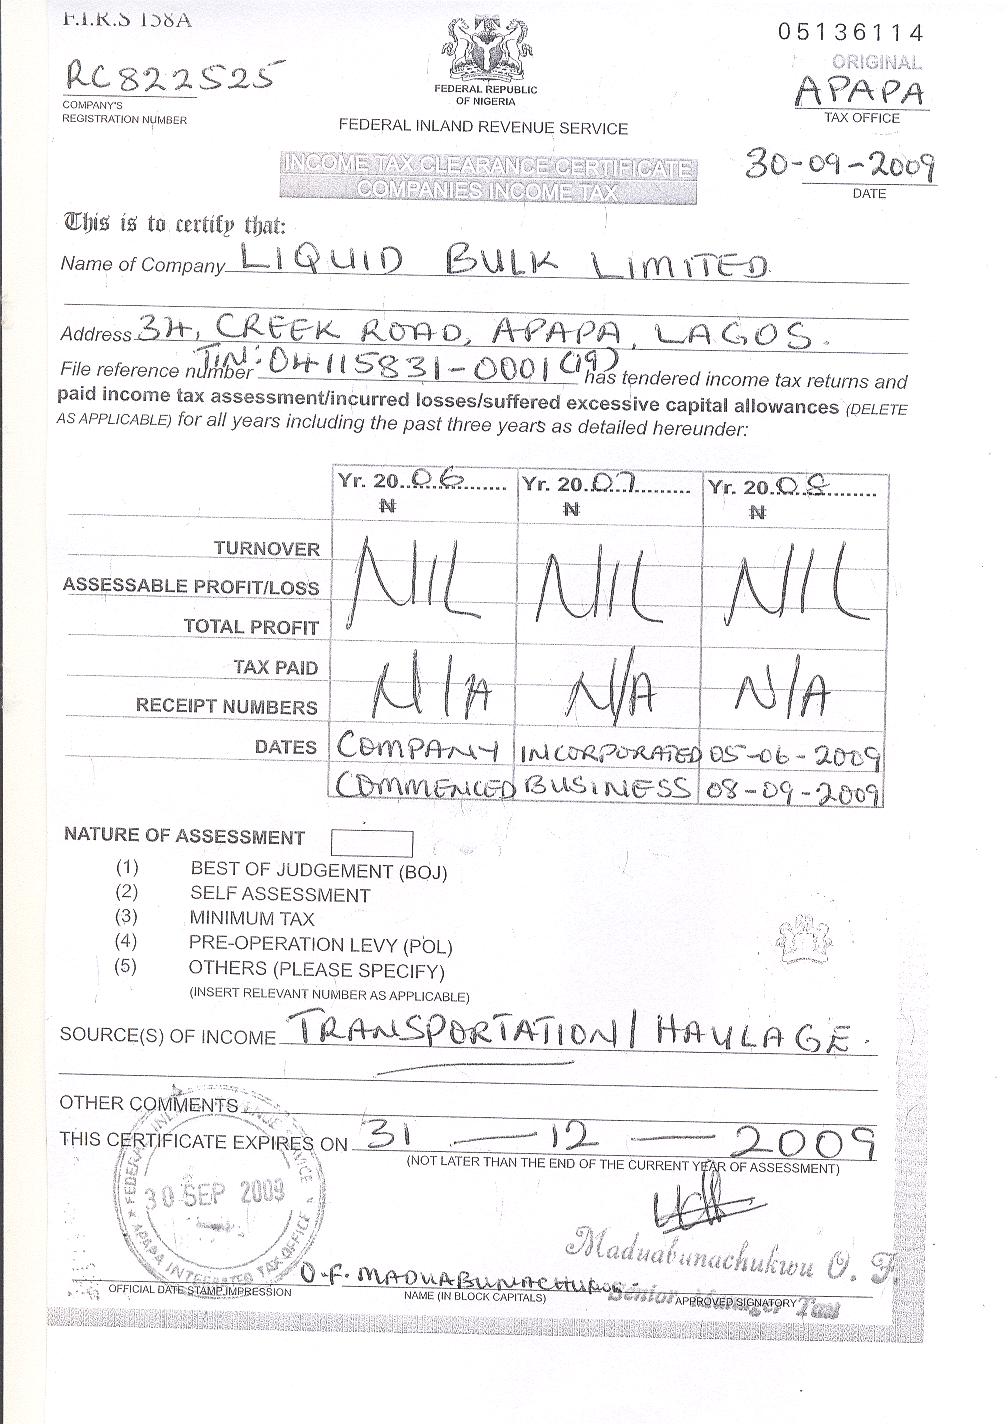 F.I.R.S 158A
05136114
ORIGINAL
RC822525
COMPANY'S
REGISTRATION NUMBER
FEDERAL REPUBLIC
OF NIGERIA
APAPA
TAX OFFICE
FEDERAL INLAND REVENUE SERVICE
INCOME TAX CLEARANCE CERTIFICATE
COMPANIES INCOME TAX
30-09-2009
DATE
This is to certify that:
Name of Company LIQUID BULK LIMITED
Address 34, CREEK ROAD, APAPA, LAGOS.
File reference number TIN: 04115831-0001 (19) has tendered income tax returns and
paid income tax assessment/incurred losses/suffered excessive capital allowances (DELETE
AS APPLICABLE) for all years including the past three years as detailed hereunder:
Yr. 20..06.......... Yr. 20.07.......... Yr. 20.08..........
₦ ₦ ₦
TURNOVER
ASSESSABLE PROFIT/LOSS NIL NIL NIL
TOTAL PROFIT
TAX PAID
RECEIPT NUMBERS N/A N/A N/A
DATES COMPANY INCORPORATED 05-06-2009
COMMENCED BUSINESS 08-09-2009
NATURE OF ASSESSMENT
(1) BEST OF JUDGEMENT (BOJ)
(2) SELF ASSESSMENT
(3) MINIMUM TAX
(4) PRE-OPERATION LEVY (POL)
(5) OTHERS (PLEASE SPECIFY)
(INSERT RELEVANT NUMBER AS APPLICABLE)
SOURCE(S) OF INCOME TRANSPORTATION/HAULAGE.
OTHER COMMENTS
THIS CERTIFICATE EXPIRES ON 31 — 12 — 2009
(NOT LATER THAN THE END OF THE CURRENT YEAR OF ASSESSMENT)
30 SEP 2009
APAPA INTEGRATED TAX OFFICE
Maduabunachukwu O. F.
O.F. MADUABUNACHUKWU
Senior Manager Tax
OFFICIAL DATE STAMP IMPRESSION
NAME (IN BLOCK CAPITALS)
APPROVED SIGNATORY